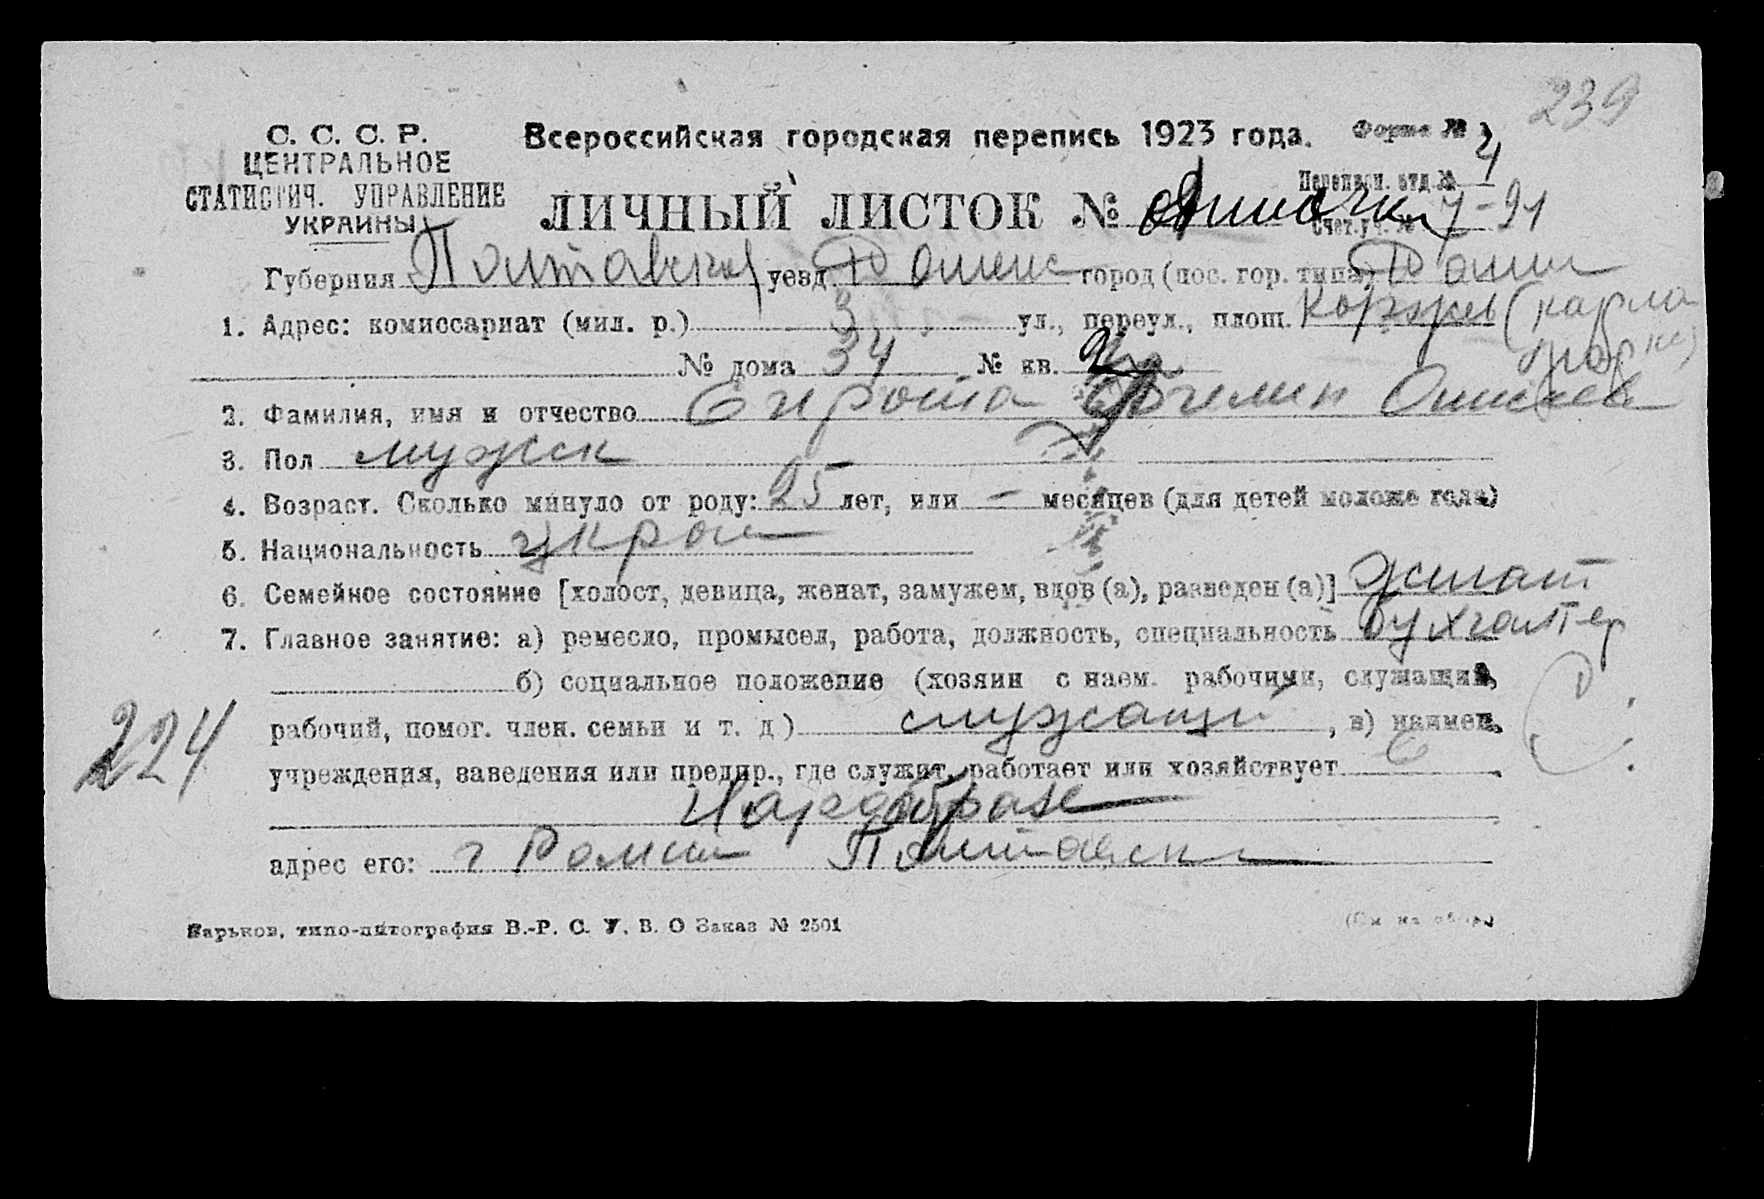 239
С. С. С. Р.
ЦЕНТРАЛЬНОЕ
СТАТИСТИЧ. УПРАВЛЕНИЕ
УКРАИНЫ
Всероссийская городская перепись 1923 года. Форма №
ЛИЧНЫЙ ЛИСТОК № одиночки
Переписн. отд. №
Счет. уч. № 7-91
Губерния Полтавская уезд Роменс город (пос. гор. типа) Ромни
1. Адрес: комиссариат (мил. р.) 3 ул., переул., площ. (карла
№ дома 34 № кв. 2
2. Фамилия, имя и отчество Сирота
3. Пол мужск
4. Возраст. Сколько минуло от роду: 25 лет, или – месяцев (для детей моложе года)
5. Национальность украин
6. Семейное состояние [холост, девица, женат, замужем, вдов (а), разведен (а)] женат
7. Главное занятие: а) ремесло, промысел, работа, должность, специальность бухгалтер
б) социальное положение (хозяин с наем. рабочими, служащий,
рабочий, помог. член. семьи и т. д) служащий, в) наимен.
учреждения, заведения или предпр., где служит, работает или хозяйствует
224
Наробраз
адрес его: г Ромни Полтавск
Харьков, типо-литография В.-Р. С. У. В. О Заказ № 2501
(См на обор.)